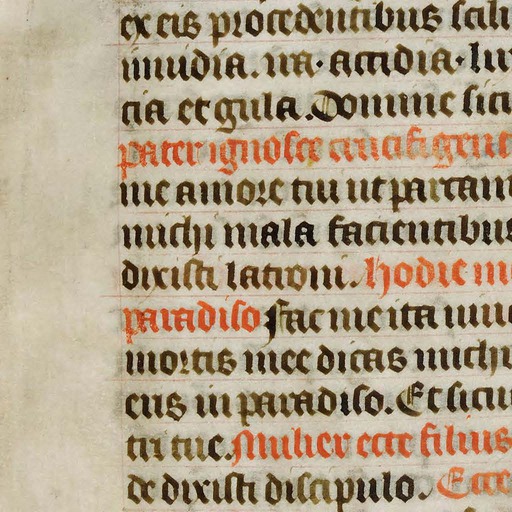 ex eis procedentibus scili
inuidia. ira. accidia. lux
cia et gula. Domine sicu
pater ignosce crucifigent
me amore tui ut parcam
michi mala facientibus
dixisti latroni. hodie me
paradiso fac me ita uiue
mortis mee dicas michi
eris in paradiso. Et sicut
tri tue. Mulier ecce filius
de dixisti discipulo. Ecce